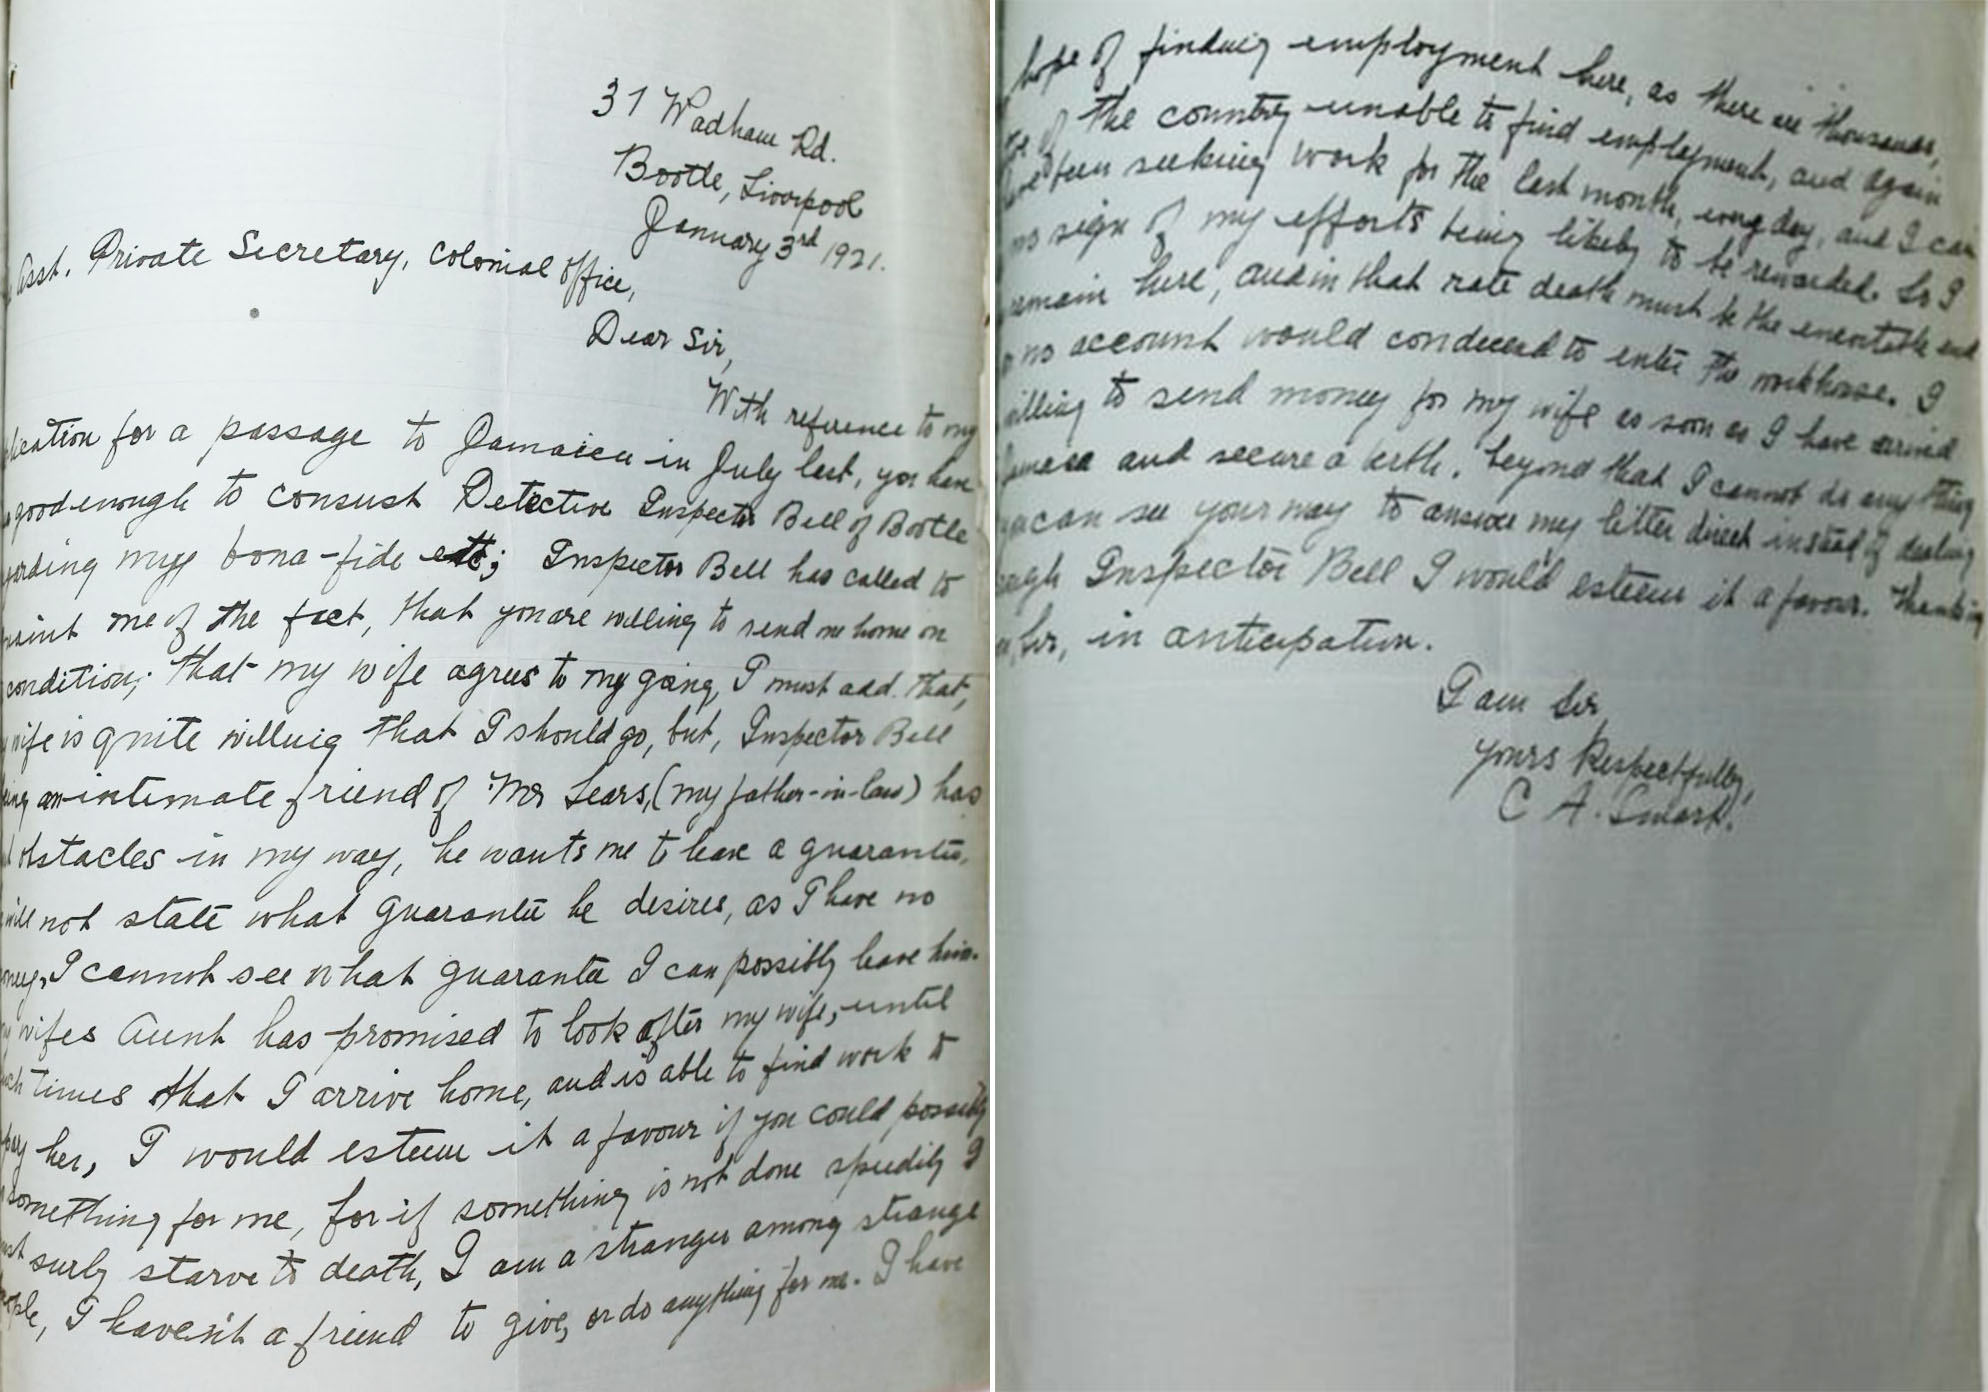 31 Wadham Rd.
Bootle, Liverpool
January 3rd 1921.
Asst. Private Secretary, Colonial Office,
Dear Sir,
With reference to my
lication for a passage to Jamaica in July last, you have
good enough to consust Detective Inspector Bell of Bootle
garding my bona-fide etc; Inspector Bell has called to
quaint me of the fact, that you are willing to send me home on
condition; that my wife agrees to my going, I must add that,
wife is quite willing that I should go, but, Inspector Bell
eing an intimate friend of Mr Sears, (my father-in-law) has
obstacles in my way, he wants me to leave a guarantee,
will not state what guarantee he desires, as I have no
oney, I cannot see what guarantee I can possibly leave him.
wifes Aunt has promised to look after my wife, until
uch times that I arrive home, and is able to find work to
pay her, I would esteem it a favour if you could possibly
something for me, for if something is not done speedily I
ust surly starve to death, I am a stranger among strange
eople, I haven't a friend to give, or do anything for me. I have
hope of finding employment here, as there are thousands,
of the country unable to find employment, and again
have been seeking work for the last month, every day, and I can
no sign of my efforts being likely to be rewarded. So I
emain here, and in that rate death must be the enevitable end
no account would condecend to enter the workhouse. I
willing to send money for my wife as soon as I have arrived
Jamaica and secure a berth. beyond that I cannot do any thing
can see your way to answer my letter direct instead of dealing
ough Inspector Bell I would esteem it a favour. Thanking
Sir, in anticipation.
I am Sir,
Yours Respectfully,
C A. Smart.